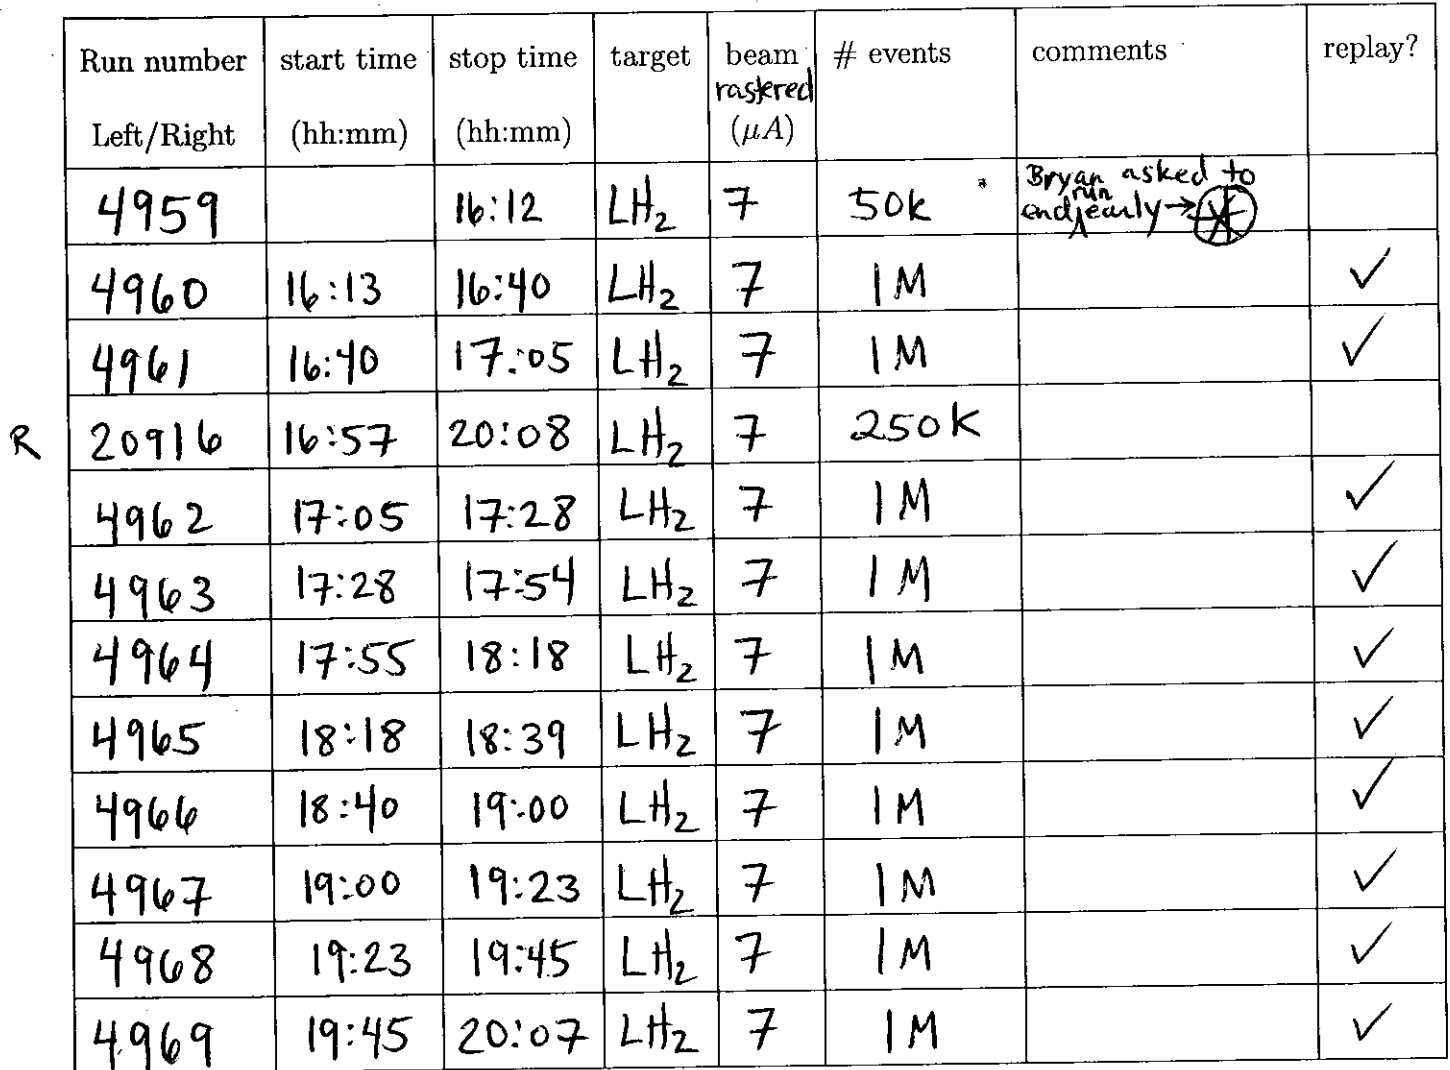 Run number start time stop time target beam # events comments replay?
rastered
Left/Right (hh:mm) (hh:mm) (μA)
4959 16:12 LH₂ 7 50k Bryan asked to
end run early →
4960 16:13 16:40 LH₂ 7 1M ✓
4961 16:40 17:05 LH₂ 7 1M ✓
R 20916 16:57 20:08 LH₂ 7 250K
4962 17:05 17:28 LH₂ 7 1M ✓
4963 17:28 17:54 LH₂ 7 1M ✓
4964 17:55 18:18 LH₂ 7 1M ✓
4965 18:18 18:39 LH₂ 7 1M ✓
4966 18:40 19:00 LH₂ 7 1M ✓
4967 19:00 19:23 LH₂ 7 1M ✓
4968 19:23 19:45 LH₂ 7 1M ✓
4969 19:45 20:07 LH₂ 7 1M ✓